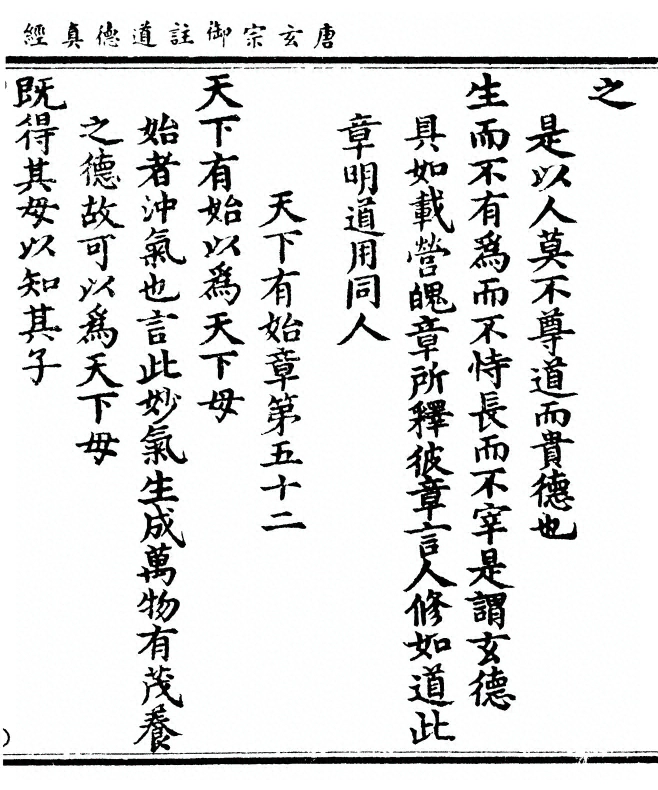 唐玄宗御註道德真經
之
是以人莫不尊道而貴德也
生而不有爲而不恃長而不宰是謂玄德
具如載營魄章所釋彼章言人修如道此
章明道用同人
天下有始章第五十二
天下有始以爲天下母
始者沖氣也言此妙氣生成萬物有茂養
之德故可以爲天下母
既得其母以知其子